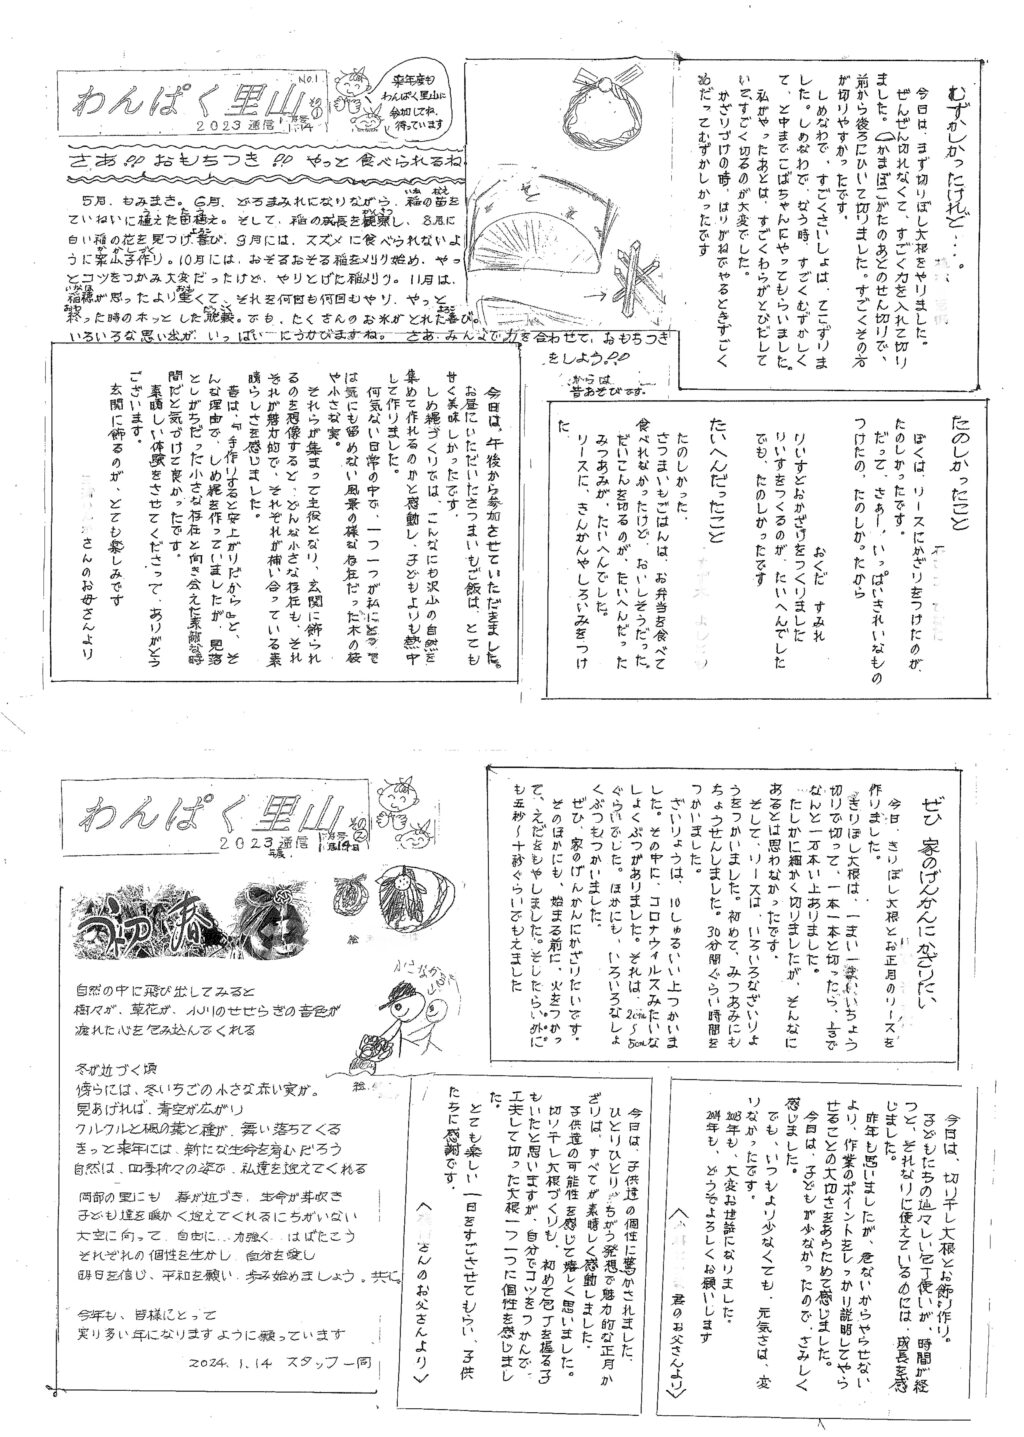 わんぱく里山 その①
No.1
2023通信 1月号 1.14
来年度も
わんぱく里山に
参加してね。
待っています
さあ!! おもちつき!! やっと食べられるね
5月、もみまき。6月、どろまみれになりながら、稲の苗を
ていねいに植えた田植え。そして、稲の成長を観察し、8月に
白い稲の花を見つけ喜び、9月には、スズメに食べられないよ
うに案山子作り。10月には、おそるおそる稲を刈り始め、やっ
とコツをつかみ大変だったけど、やりとげた稲刈り。11月は、
稲穂が思ったより重くて、それを何回も何回もやり、やっと
終った時のホッとした脱穀。でも、たくさんのお米がとれた喜び。
いろいろな思い出が、いっぱいにうかびますね。さあ、みんなで力を合わせて、おもちつき
をしよう!!
からは
昔あそびです。
むずかしかったけれど…。
今日は、まず切りぼし大根をやりました。
ぜんぜん切れなくて、すごく力を入れて切り
ました。かまぼこがたのあとのせん切りで、
前から後ろにひいて切りました。すごくその方
が切りやすかったです。
しめなわで、すごくさいしょは、てこずりま
した。しめなわで、なう時、すごくむずかしく
て、と中までこばちゃんにやってもらいました。
私がやったあとは、すごくわらがとびだして
いてすごく切るのが大変でした。
かざりづけの時、はりがねでやるときすごく
めだってむずかしかったです
たのしかったこと
ぼくは、リースにかざりをつけたのが、
たのしかったです。
だって、さぁー、いっぱいきれいなもの
つけたの、たのしかったから
おくだ すみれ
りいすとおかざりをつくりました
りいすをつくるのが、たいへんでした
でも、たのしかったです
たいへんだったこと
たのしかった、
さつまいもごはんは、お弁当を食べて
食べれなかったけど、おいしそうだった。
だいこんを切るのが、たいへんだった
みつあみが、たいへんでした。
リースに、きんかんやしろいみをつけ
た
今日は、午後から参加させていただきました。
お昼にいただいたさつまいもご飯は、とても
甘く美味しかったです。
しめ縄づくりでは、こんなにも沢山の自然を
集めて作れるのかと感動し、子どもよりも熱中
して作りました。
何気ない日常の中で、一つ一つが私にとって
は気にも留めない風景の様な存在だった木の枝
や小さな実。
それらが集まって主役となり、玄関に飾られ
るのを想像すると、どんな小さな存在も、それ
それが魅力的で、それぞれが補い合っている素
晴らしさを感じました。
昔は、『手作りすると安上がりだから』と、そ
んな理由で、しめ縄を作っていましたが、見落
としがちだった小さな存在と向き合えた素敵な時
間だと気づけて良かったです。
素晴しい体験をさせてくださって、ありがとう
ございます。
玄関に飾るのが、とても楽しみです
さんのお母さんより
わんぱく里山 その②
2023通信 1月号 1月14日
迎春
絵
絵
自然の中に飛び出してみると
樹々が、草花が、小川のせせらぎの音色が
疲れた心を包み込んでくれる
冬が近づく頃
傍らには、冬いちごの小さな赤い実が。
見あげれば、青空が広がり
クルクルと楓の葉と種が、舞い落ちてくる
きっと来年には、新たな生命を育むだろう
自然は、四季折々の姿で、私達を迎えてくれる
岡部の里にも 春が近づき、生命が芽吹き
子ども達を暖かく迎えてくれるにちがいない
大空に向って、自由に…力強く… はばたこう
それぞれの個性を生かし、自分を愛し
明日を信じ、平和を願い、歩み始めましょう。共に。
今年も、皆様にとって
実り多い年になりますように願っています
2024.1.14 スタッフ一同
ぜひ 家のげんかんにかざりたい
今日、きりぼし大根とお正月のリースを
作りました。
きりぼし大根は、一まい一まいいちょう
切りで切って、一本一本と切ったら、
なんと一万本い上ありました。
たしかに細かく切りましたが、そんなに
あるとは思わなかったです。
そして、リースは、いろいろなざいりょ
うをつかいました。初めて、みつあみにも
ちょうせんしました。30分間ぐらい時間を
つかいました。
ざいりょうは、10しゅるいい上つかいま
した。その中に、コロナウィルスみたいな
しょくぶつがありました。それは、2cm〜5cm
ぐらいでした。ほかにも、いろいろなしょ
くぶつもつかいました。
ぜひ、家のげんかんにかざりたいです。
そのほかにも、始まる前に、火をつかっ
て、えだをもやしました。そしたらい外に
も五秒〜十秒ぐらいでもえました
今日は、切り干し大根とお飾り作り。
子どもたちの辿々しい包丁使いが、時間が経
つと、それなりに使えているのには、成長を感
じました。
昨年も思いましたが、危ないからやらせない
より、作業のポイントをしっかり説明してやら
せることの大切さをあらためて感じました。
今日は、子どもが少なかったので、さみしく
感じました。
でも、いつもより少なくても、元気さは、変
りなかったです。
2023年も、大変お世話になりました。
2024年も、どうぞよろしくお願いします
君のお父さんより〉
今日は、子供達の個性に驚かされました、
ひとりひとりちがう発想で魅力的な正月か
ざりは、すべてが素晴しく感動しました。
子供達の可能性を感じて嬉しく思いました。
切り干し大根づくりも、初めて包丁を握る子
もいたと思いますが、自分でコツをつかんで、
工夫して切った大根一つ一つに個性を感じまし
た。
とても楽しい一日をすごさせてもらい、子供
たちに感謝です。
さんのお父さんより〉